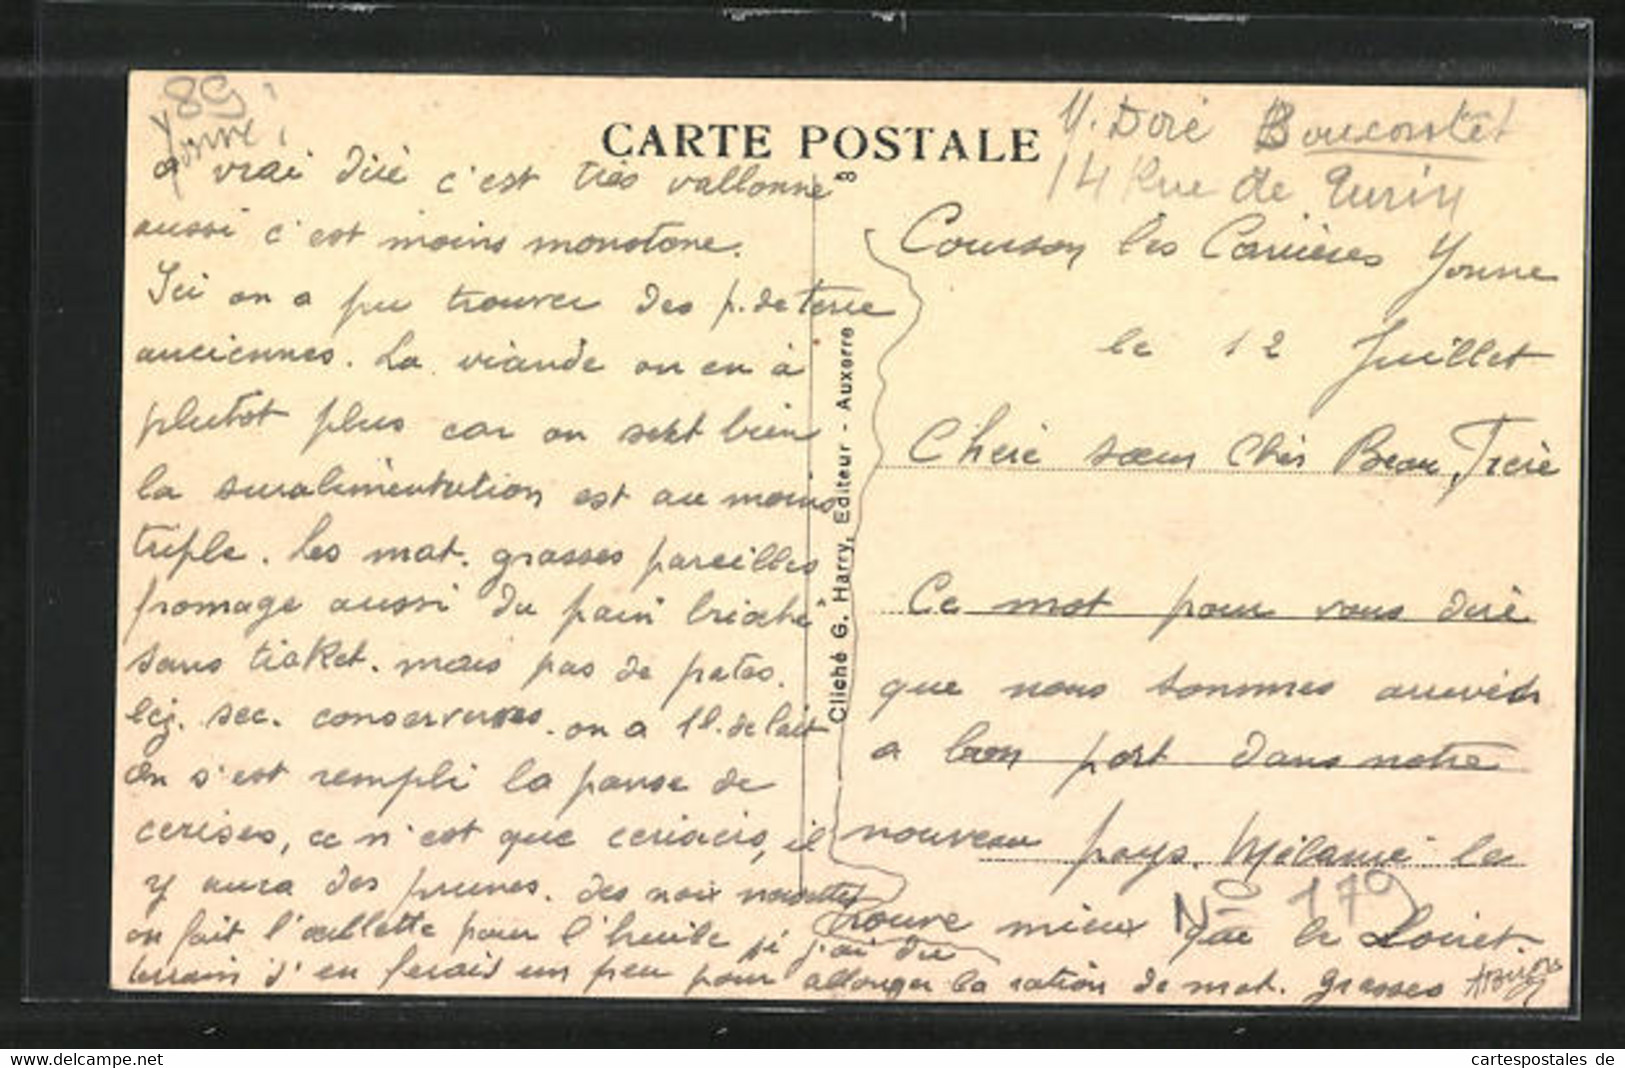 89
Yonne
CARTE POSTALE
Y. Doré
14 Rue de Turin
Courson les Carrières Yonne
le 12 Juillet
Chère sœur Cher Beau, Frère
Ce mot pour vous dire
que nous sommes arrivés
a bon port dans notre
nouveau pays. Mélanie le
trouve mieux que le Loiret.
N° 179
a vrai dire c'est très vallonné
aussi c'est moins monotone.
Ici on a pu trouver des p. de terre
anciennes. La viande on en à
plutot plus car on sert bien
la suralimentation est au moins
triple. Les mat. grasses pareilles
fromage aussi du pain brioché
sans ticket. mais pas de pates.
leg. sec. conserves. on a 1l. de lait
On s'est rempli la panse de
cerises, ce n'est que cerisiers, il
y aura des prunes. des noix noisettes
on fait l'œillette pour l'huile si j'ai du
terrain j'en ferais un peu pour allonger la ration de mat. grasses
8
Cliché G. Harry, Editeur - Auxerre
cartespostales de